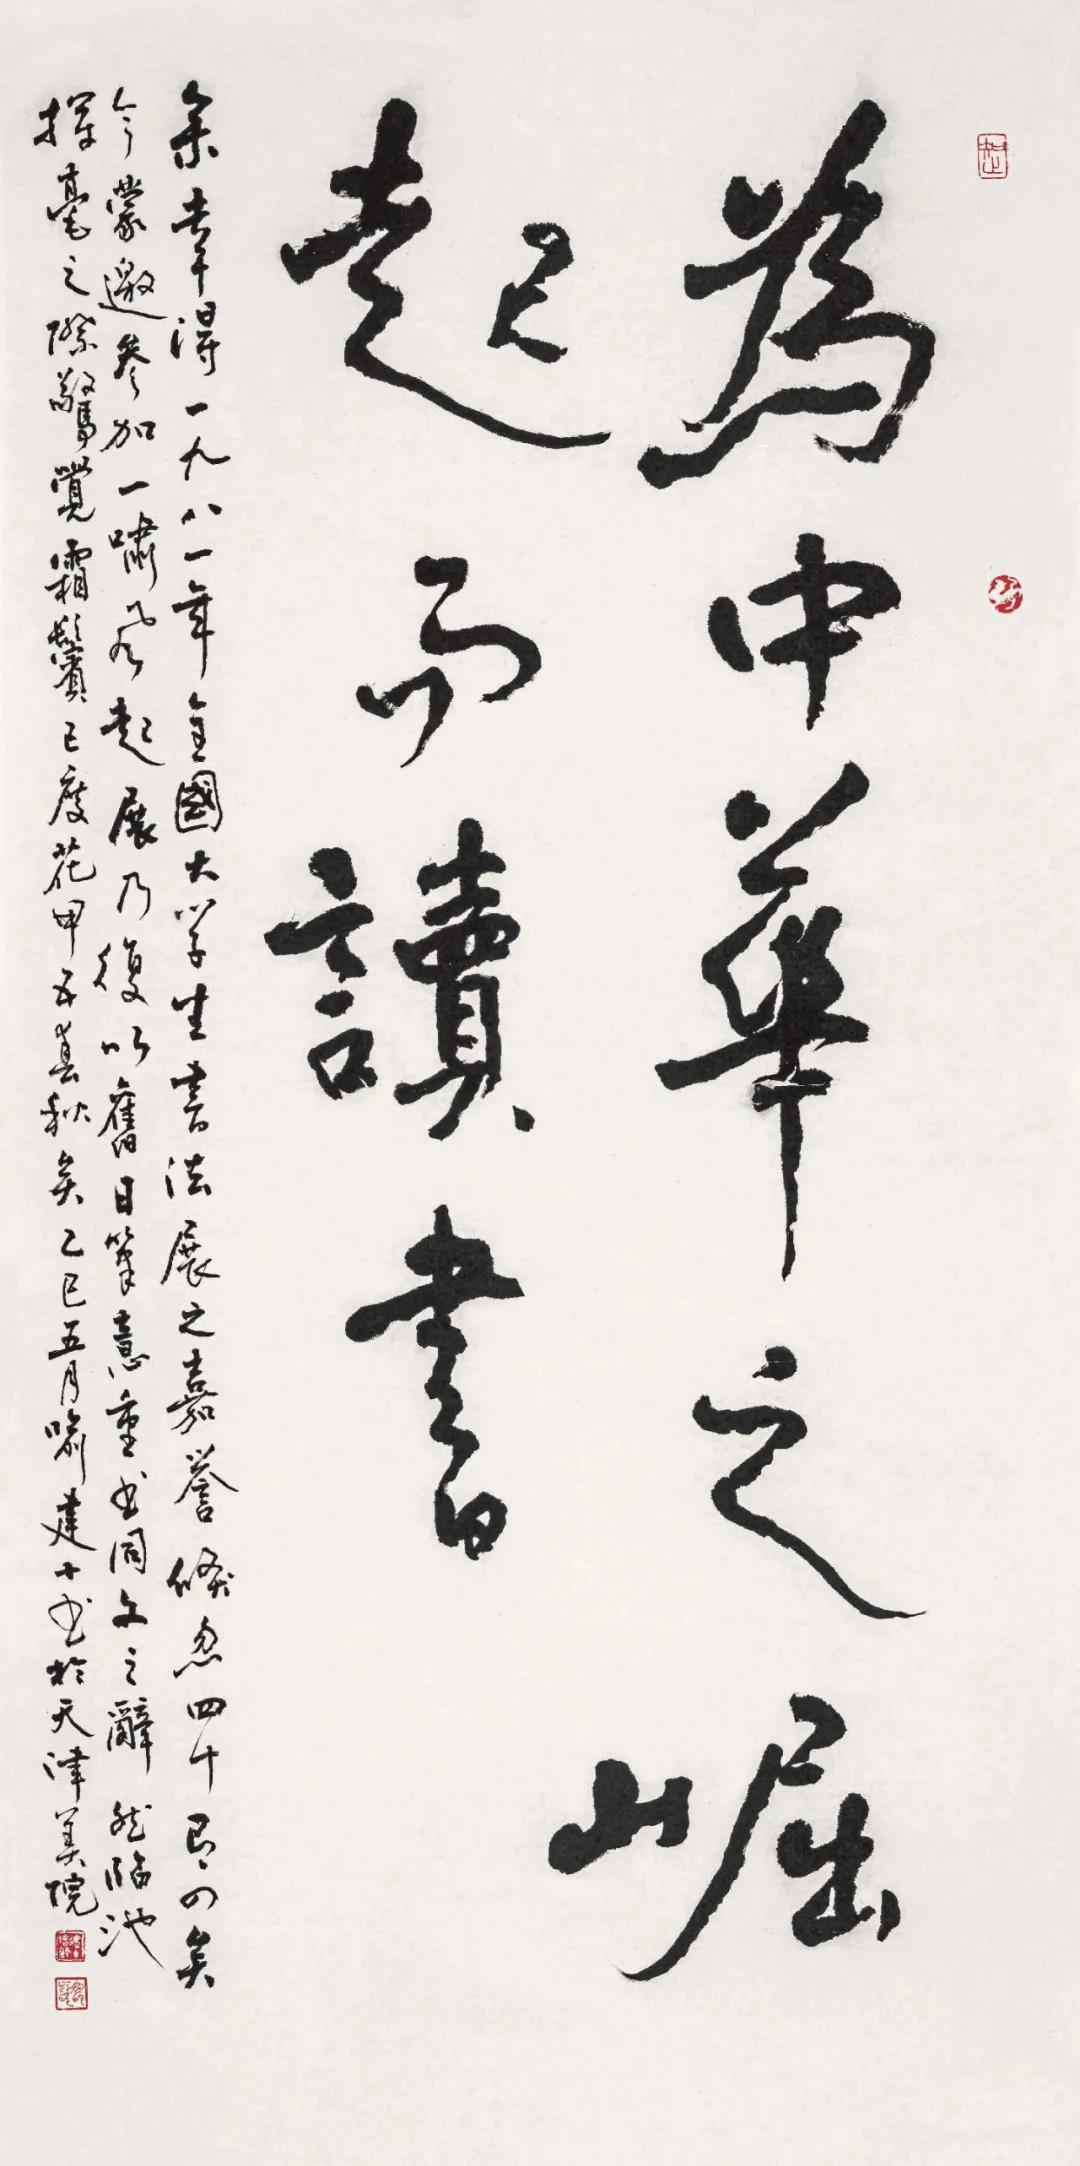 為中華之崛
起而讀書
余幸得一九八一年全國大學生書法展之嘉譽倏忽四十又四矣
今蒙邀參加一嘯風起展乃復以舊日筆意重書同文之辭然臨池
揮毫之際驚覺霜鬢已度花甲五春秋矣乙巳五月喻建十書於天津美院